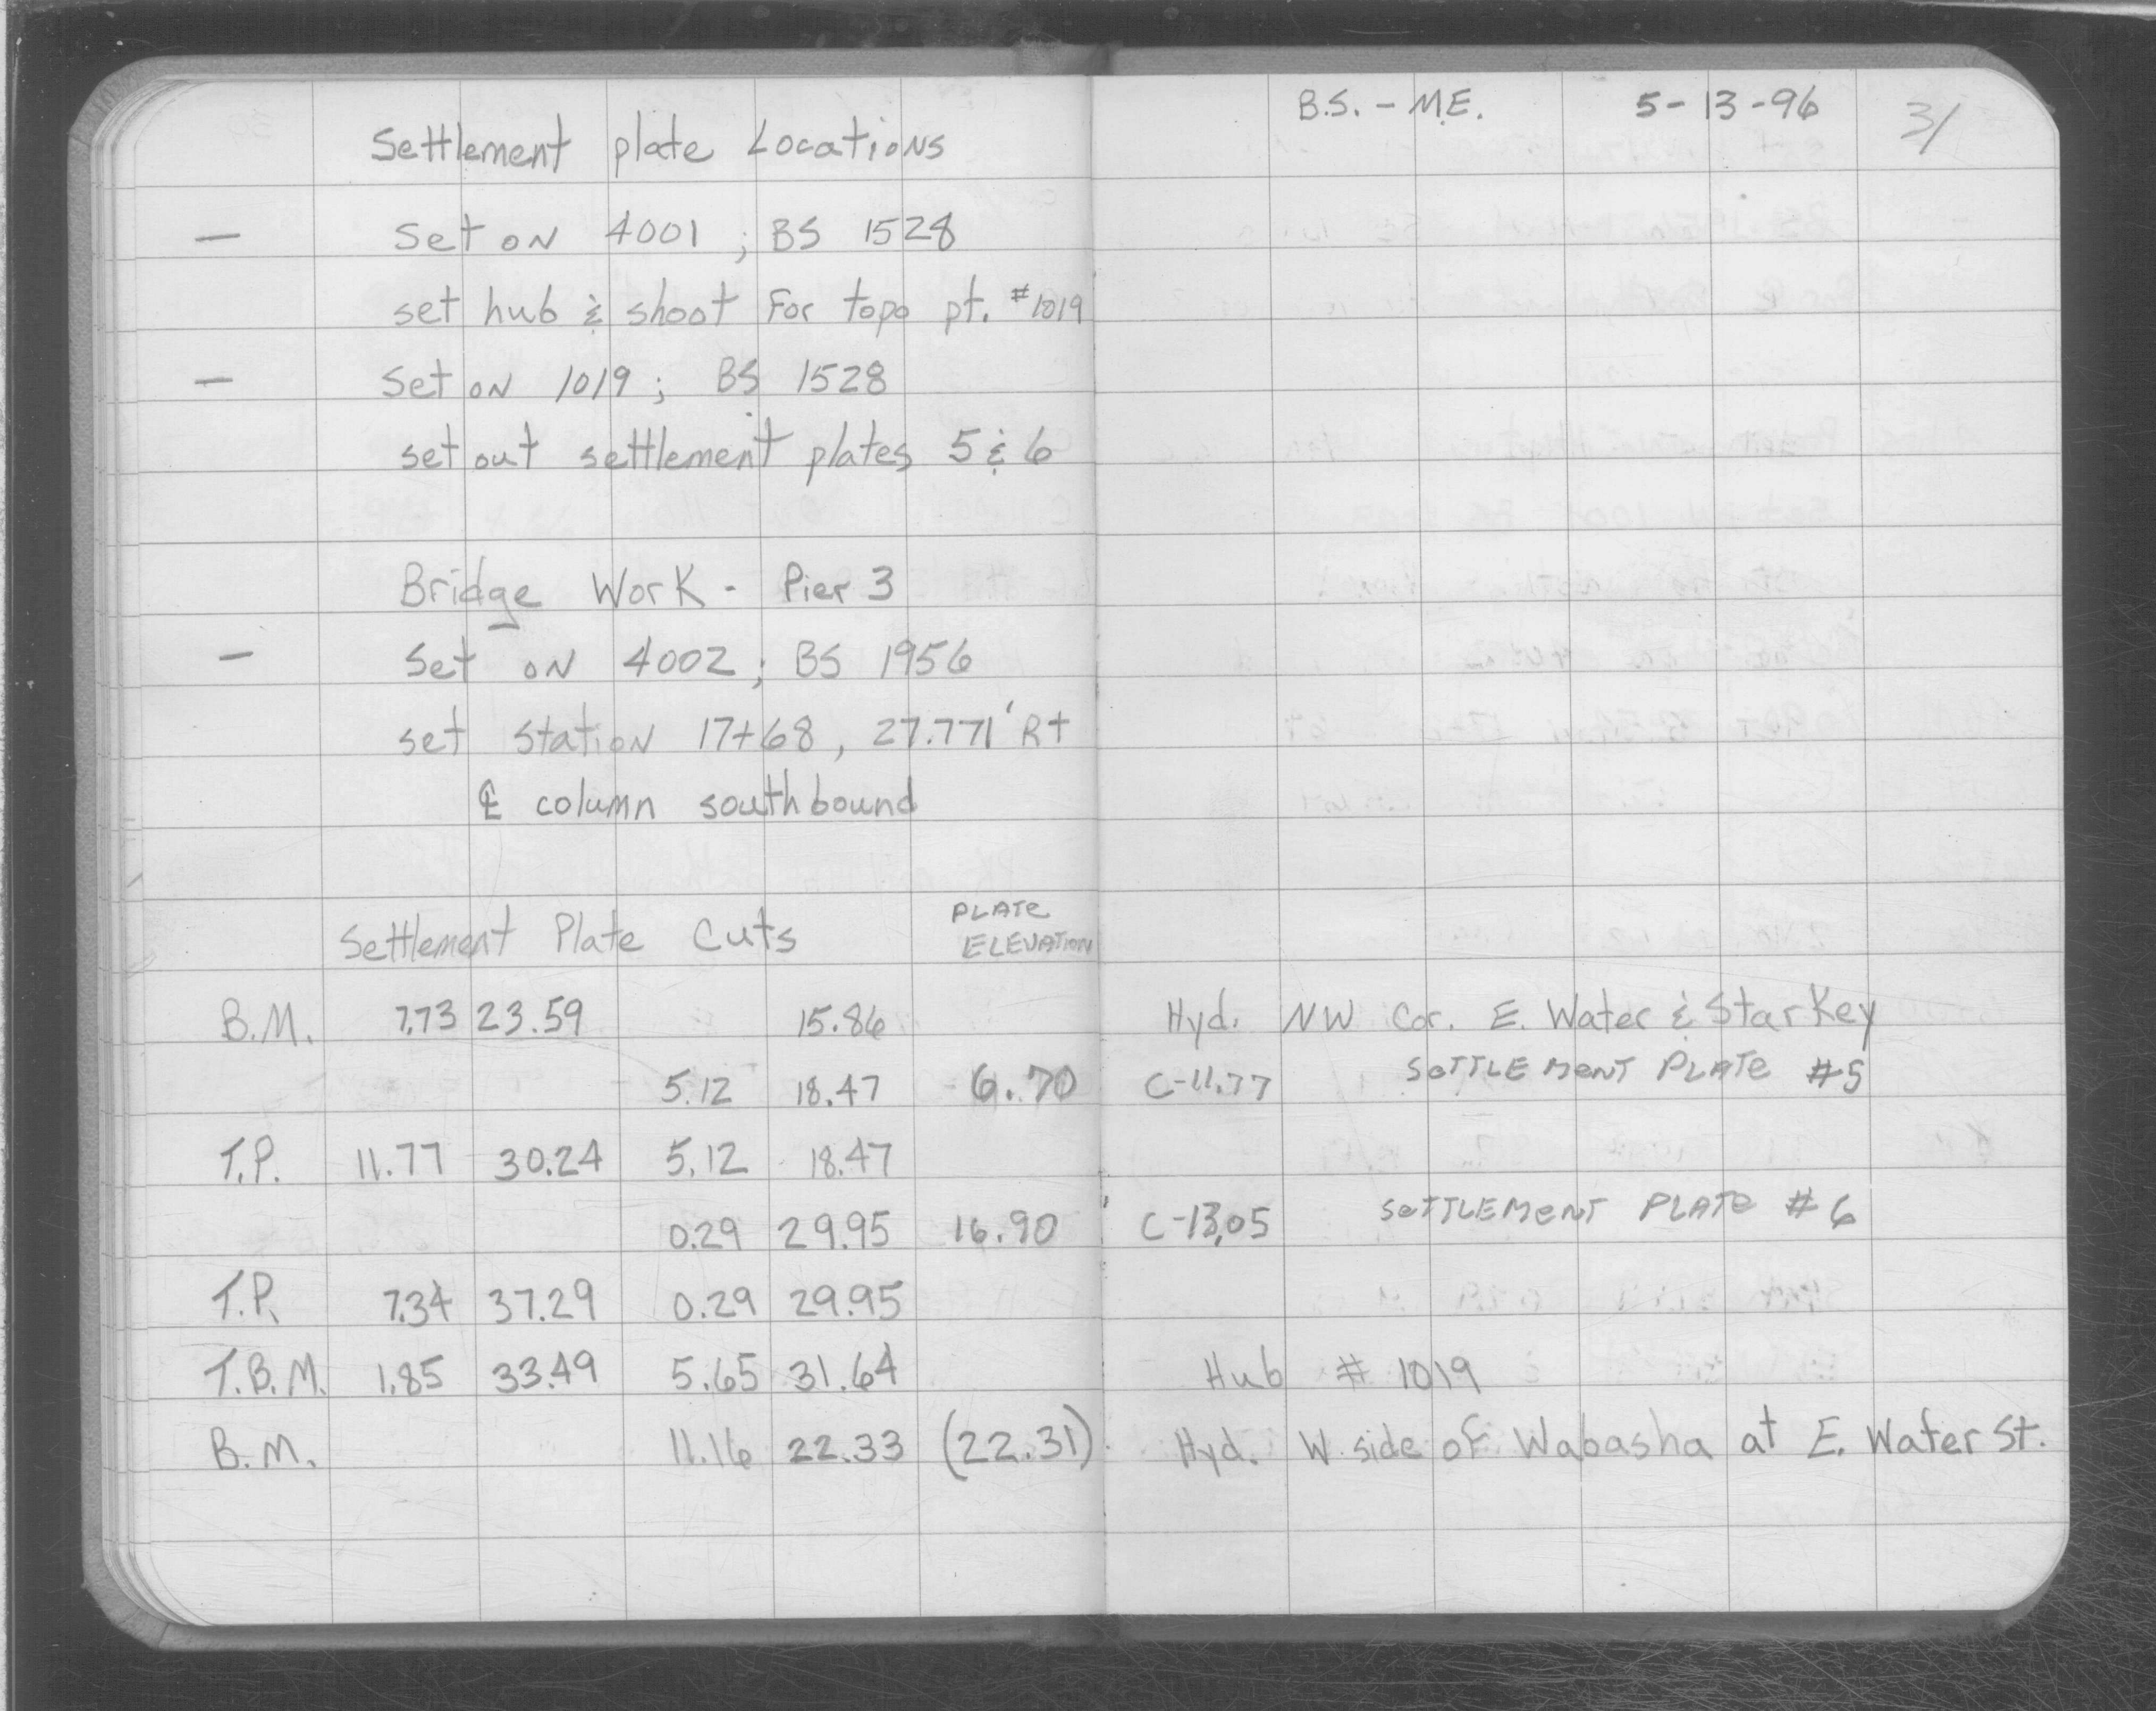 B.S. - M.E. 5-13-96 31
Settlement plate Locations
— set on 4001 ; BS 1528
set hub & shoot for topo pt. #1019
— set on 1019 ; BS 1528
set out settlement plates 5 & 6
Bridge Work - Pier 3
— set on 4002 ; BS 1956
set station 17+68, 27.771' Rt
℄ column southbound
Settlement Plate Cuts PLATE ELEVATION
B.M. 7.73 23.59 15.86 Hyd. NW Cor. E. Water & Starkey
5.12 18.47 6.70 C-11.77 SETTLEMENT PLATE #5
T.P. 11.77 30.24 5.12 18.47
0.29 29.95 16.90 C-13.05 SETTLEMENT PLATE #6
T.P. 7.34 37.29 0.29 29.95
T.B.M. 1.85 33.49 5.65 31.64 Hub # 1019
B.M. 11.16 22.33 (22.31) Hyd. W. side of Wabasha at E. Water St.